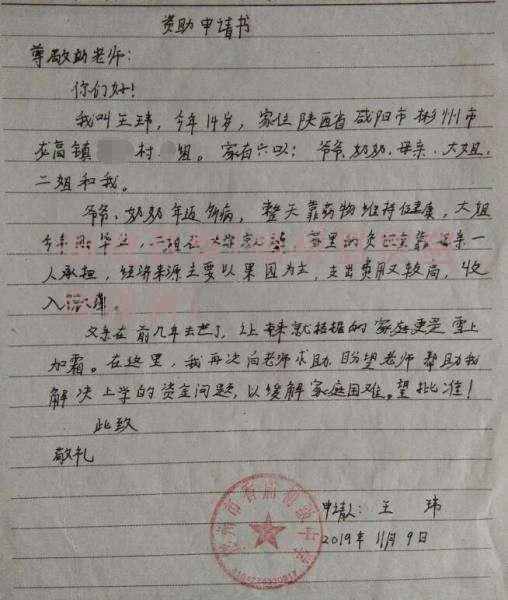 资助申请书
尊敬的老师:
你们好!
我叫王玮,今年14岁,家住陕西省咸阳市彬州市
高镇 村 组。家有六口:爷爷、奶奶、母亲、大姐、
二姐和我。
爷爷、奶奶年迈多病,整天靠药物维持健康,大姐
毕业,二姐在大学,家里的靠一
人承担,经济来源主要以果园为主,支出费用又较高,收
入
父亲在前几年去世了,让本来就拮据的家庭更是雪上
加霜。在这里,我再次向老师求助,盼望老师帮助我
解决上学的资金问题,以缓解家庭困难。望批准!
此致
敬礼
申请人:王玮
2019年11月9日
彬州市香庙初级中学